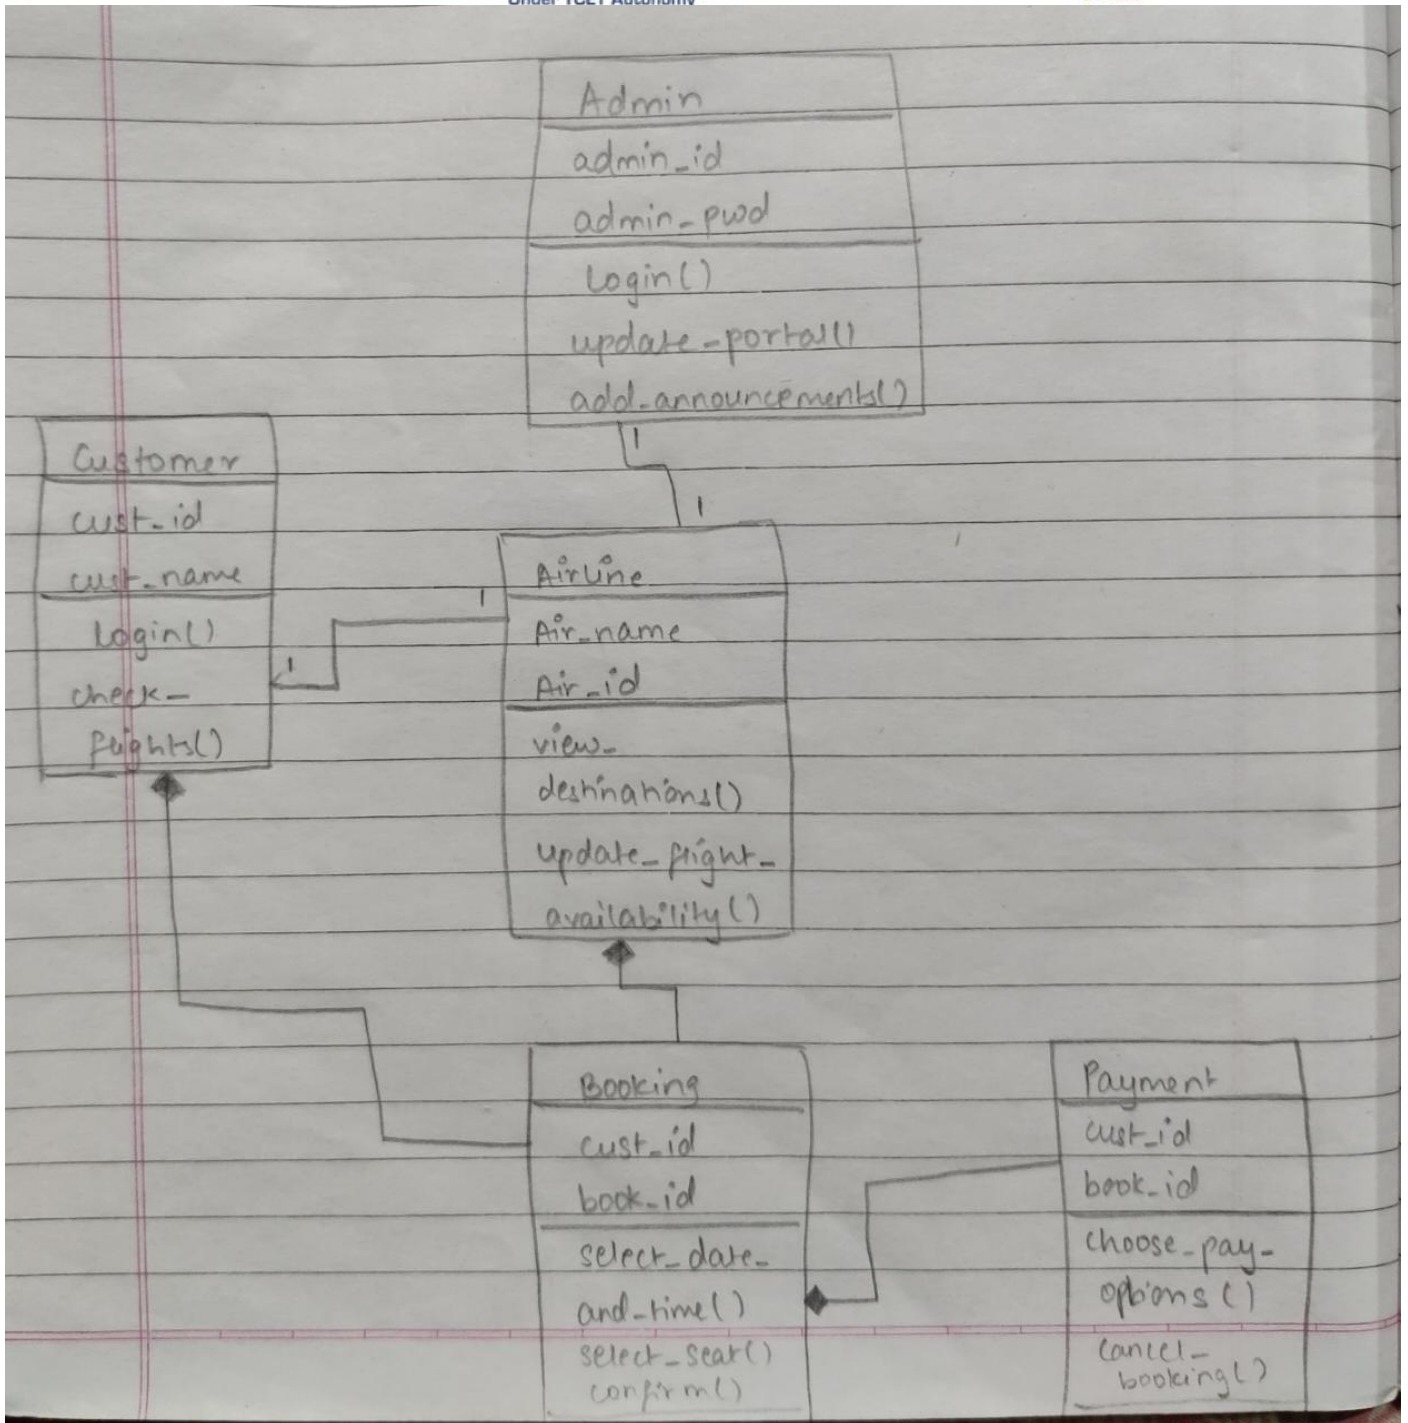 Under TCET Autonomy
Admin
admin_id
admin_pwd
login()
update_portal()
add_announcements()
1
1
Customer
cust_id
cust_name
login()
check_
flights()
1
1
Airline
Air_name
Air_id
view_
destinations()
update_flight_
availability()
Booking
cust_id
book_id
select_date_
and_time()
select_seat()
confirm()
Payment
cust_id
book_id
choose_pay_
options()
cancel_
booking()